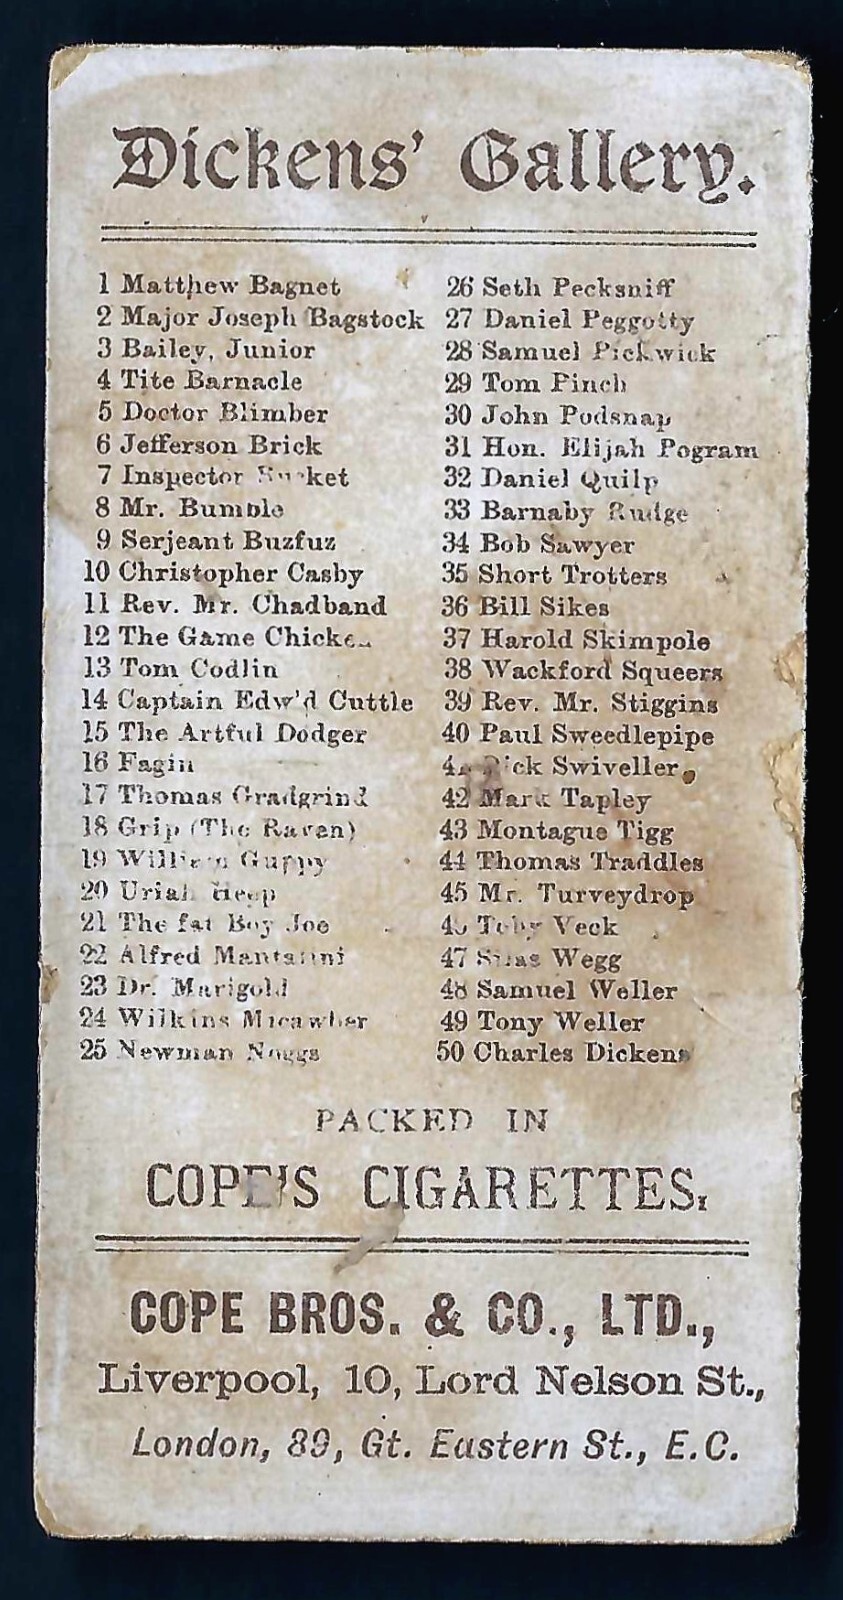 Dickens' Gallery.
1 Matthew Bagnet
2 Major Joseph Bagstock
3 Bailey, Junior
4 Tite Barnacle
5 Doctor Blimber
6 Jefferson Brick
7 Inspector Bucket
8 Mr. Bumble
9 Serjeant Buzfuz
10 Christopher Casby
11 Rev. Mr. Chadband
12 The Game Chicken
13 Tom Codlin
14 Captain Edw'd Cuttle
15 The Artful Dodger
16 Fagin
17 Thomas Gradgrind
18 Grip (The Raven)
19 William Guppy
20 Uriah Heep
21 The fat Boy Joe
22 Alfred Mantalini
23 Dr. Marigold
24 Wilkins Micawber
25 Newman Noggs
26 Seth Pecksniff
27 Daniel Peggotty
28 Samuel Pickwick
29 Tom Pinch
30 John Podsnap
31 Hon. Elijah Pogram
32 Daniel Quilp
33 Barnaby Rudge
34 Bob Sawyer
35 Short Trotters
36 Bill Sikes
37 Harold Skimpole
38 Wackford Squeers
39 Rev. Mr. Stiggins
40 Paul Sweedlepipe
41 Dick Swiveller
42 Mark Tapley
43 Montague Tigg
44 Thomas Traddles
45 Mr. Turveydrop
46 Toby Veck
47 Silas Wegg
48 Samuel Weller
49 Tony Weller
50 Charles Dickens
PACKED IN
COPE'S CIGARETTES.
COPE BROS. & CO., LTD.,
Liverpool, 10, Lord Nelson St.,
London, 89, Gt. Eastern St., E.C.